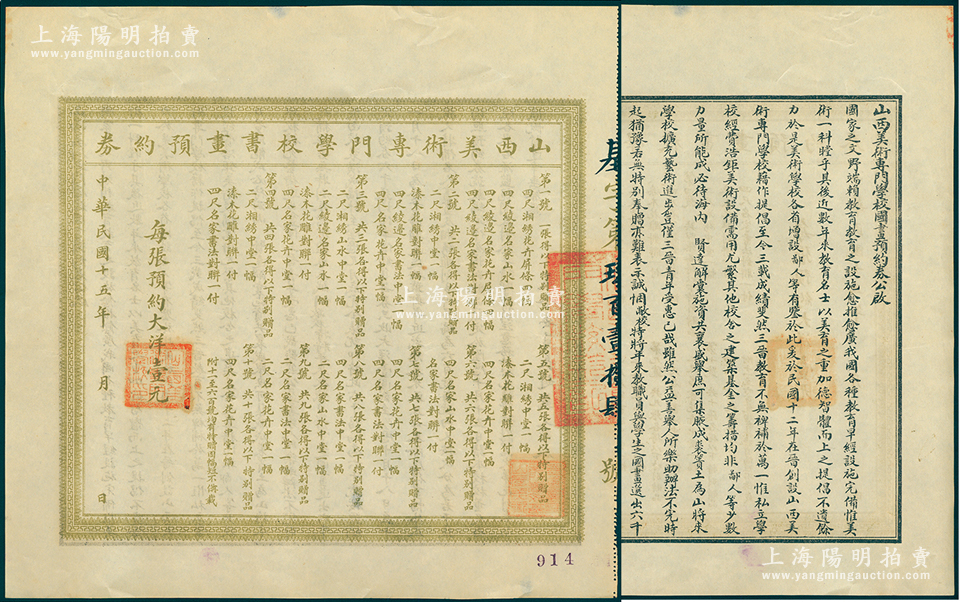 上海陽明拍賣
www.yangmingauction.com
山西美術專門學校書畫預約券
第一號 一張得以下特別贈品
四尺湘綉花卉屏條
四尺綾邊名家山水一幅
四尺綾邊名家花卉屏條
四尺綾邊名家書法對聯一付
第二號 共二張各得以下特別贈品
二尺湘綉中堂一幅
漆木花雕對聯一付
四尺名家花卉中堂一幅
四尺綾邊名家書法中堂一幅
第三號 共三張各得以下特別贈品
二尺湘綉山水中堂一幅
二尺綾邊名家山水一幅
漆木花雕對聯一付
四尺名家花卉中堂一幅
第四號 共四張各得以下特別贈品
二尺湘綉中堂一幅
漆木花雕對聯一付
四尺名家書法對聯一付
第五號 共五張各得以下特別贈品
二尺湘綉中堂一幅
漆木花雕對聯一付
四尺名家花卉中堂一幅
第六號 共六張各得以下特別贈品
四尺名家山水中堂一幅
名家書法對聯一付
第七號 共七張各得以下特別贈品
四尺名家花卉中堂一幅
四尺名家書法對聯一付
第八號 共八張各得以下特別贈品
二尺名家山水中堂一幅
四尺名家書法中堂一幅
第九號 共九張各得以下特別贈品
二尺名家花卉中堂一幅
四尺名家書法對聯一付
第十號 共十張各得以下特別贈品
四尺名家花卉中堂一幅
附十一至六百號特贈品因幅短不備載
每張預約大洋壹元
中華民國十五年 月 日
914
字第 號
山西美術專門學校國畫預約券公啟
國家之文野端賴教育教育之設施愈推愈廣我國各種教育早經設施完備惟美
術一科瞠乎其後近數年來教育名士以美育之重加德智體而上之提倡不遺餘
力於是美術學校各省增設鄙人等有鑒於此爰於民國十二年在晉創設山西美
術專門學校藉作提倡至今三載成績斐然三晉教育不無裨補於萬一惟私立學
校經費浩鉅美術設備需用尤繁其他校舍之建築基金之籌措均非鄙人等少數
力量所能成必待海內 賢達解囊施資共襄盛舉庶可集腋成裘簣土為山將來
學校擴充藝術進步豈僅三晉青年受惠已哉雖然公益善舉人所樂助辦法不完時
起猶豫若無特別奉贈亦難表示誠悃敝校特將年來教職員與學生之國畫選出六千
上海陽明拍賣
www.yangmingauction.com
上海陽明拍賣
www.yangmingauction.com